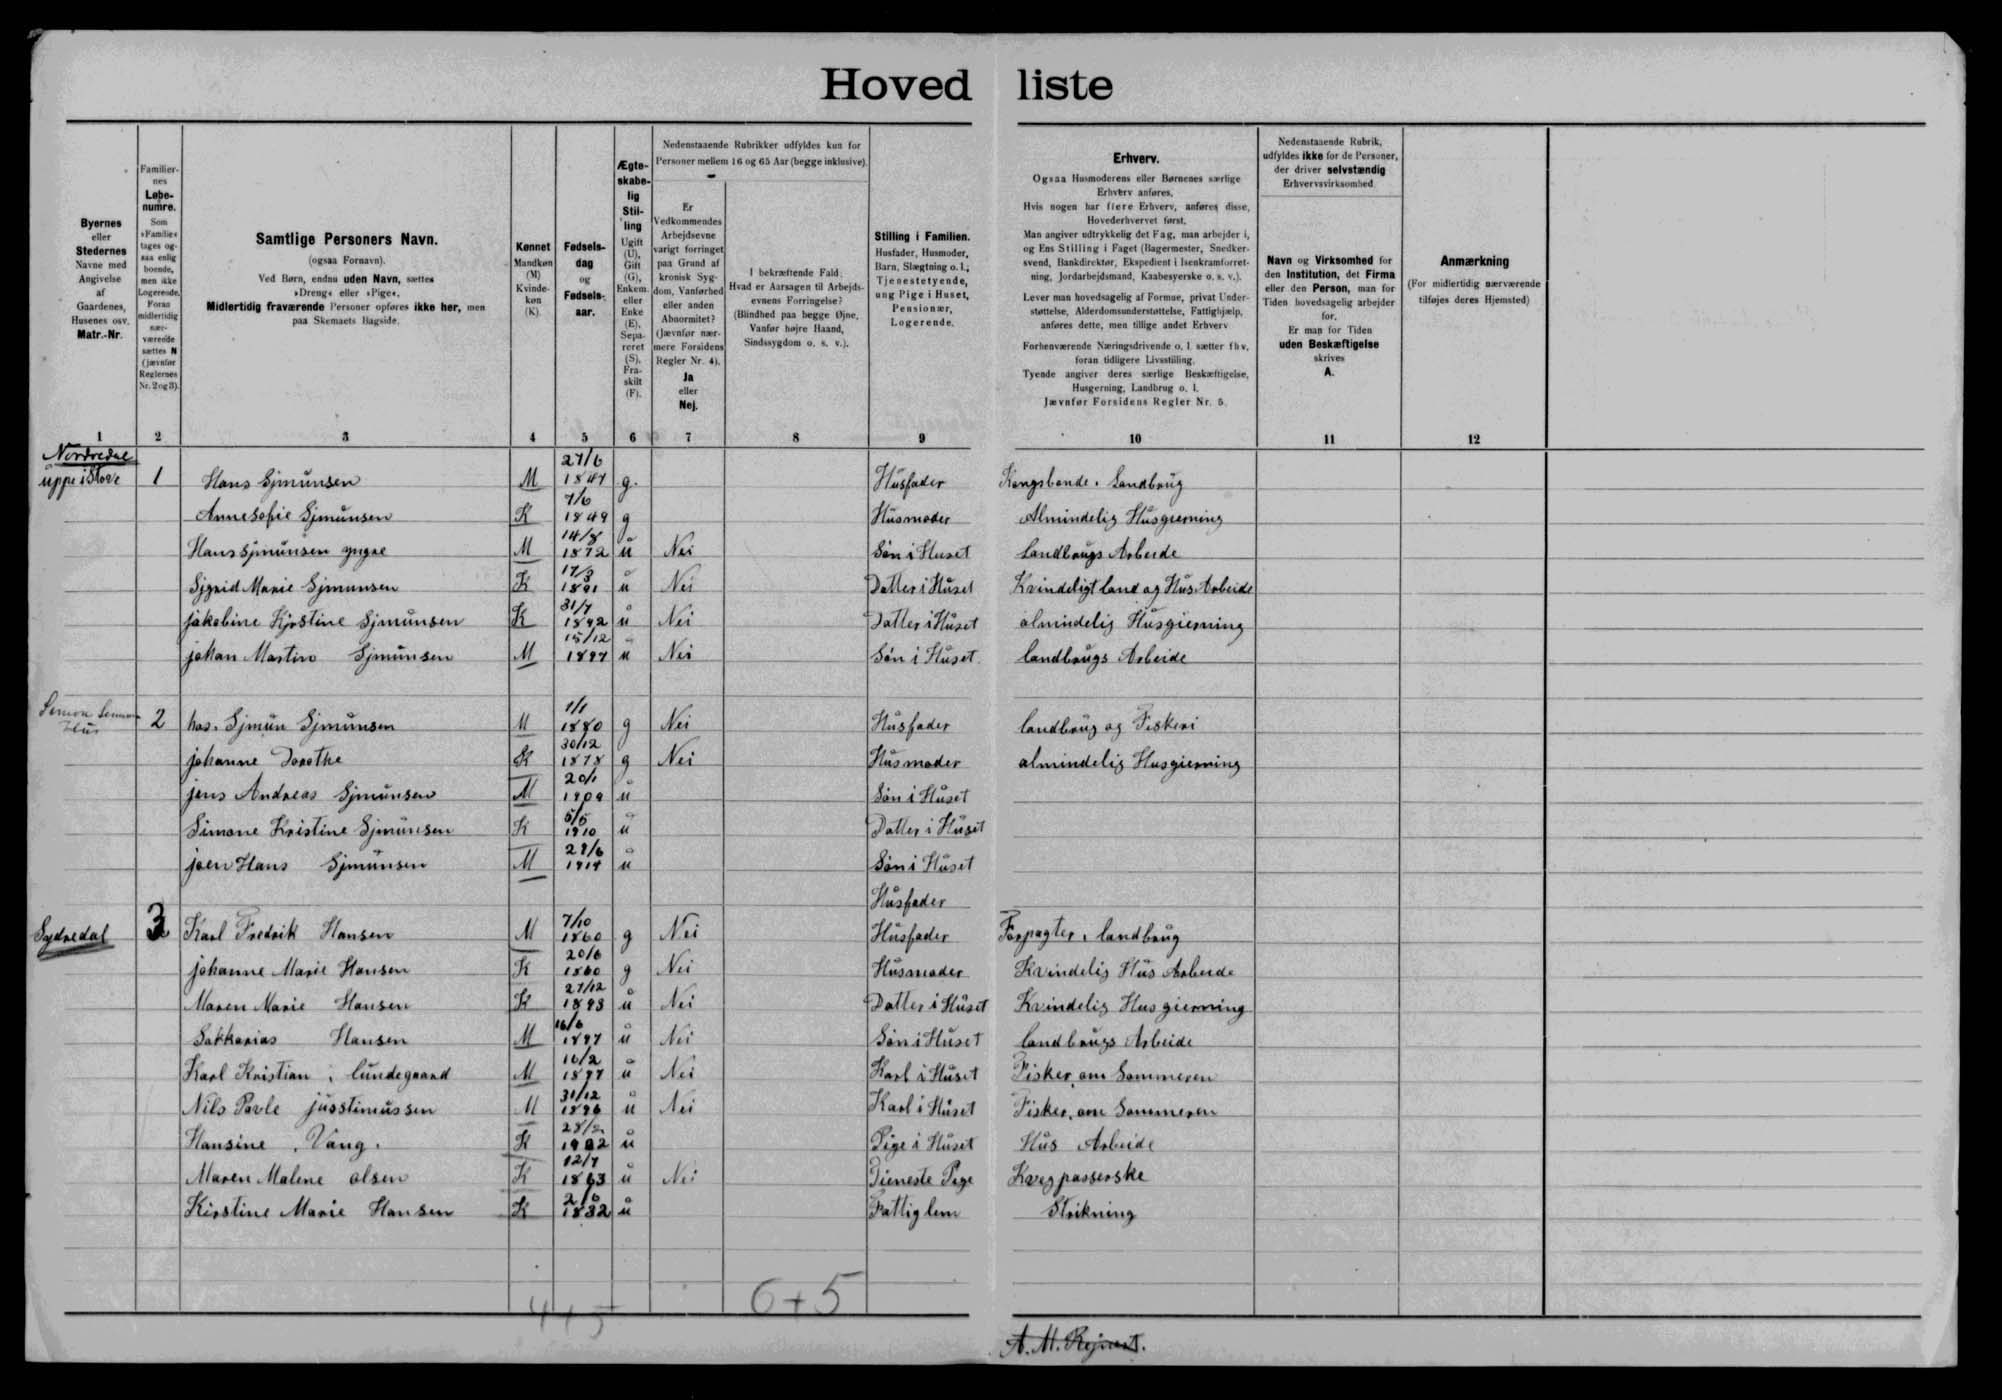 Hovedliste
Byernes eller Stedernes Navne med Angivelse af Gaardenes, Husenes osv. Matr.-Nr.
Familiernes Løbenumre. Som »Familie« tages ogsaa enlig boende, men ikke Logerende. Foran midlertidig nærværende sættes N (jævnfør Reglernes Nr. 2 og 3).
Samtlige Personers Navn. (ogsaa Fornavn). Ved Børn, endnu uden Navn, sættes »Dreng« eller »Pige«. Midlertidig fraværende Personer opføres ikke her, men paa Skemaets Bagside.
Kønnet Mandkøn (M) Kvindekøn (K).
Fødselsdag og Fødselsaar.
Ægteskabelig Stilling Ugift (U), Gift (G), Enkem. eller Enke (E), Separeret (S), Fraskilt (F).
Nedenstaaende Rubrikker udfyldes kun for Personer mellem 16 og 65 Aar (begge inklusive).
Er Vedkommendes Arbejdsevne varigt forringet paa Grund af kronisk Sygdom, Vanførhed eller anden Abnormitet? (Jævnfør nærmere Forsidens Regler Nr. 4). Ja eller Nej.
I bekræftende Fald: Hvad er Aarsagen til Arbejdsevnens Forringelse? (Blindhed paa begge Øjne, Vanfør højre Haand, Sindssygdom o. s. v.).
Stilling i Familien. Husfader, Husmoder, Barn, Slægtning o. l.; Tjenestetyende, ung Pige i Huset, Pensionær, Logerende.
Erhverv.
Ogsaa Husmoderens eller Børnenes særlige Erhverv anføres.
Hvis nogen har flere Erhverv, anføres disse, Hovederhvervet først.
Man angiver udtrykkelig det Fag, man arbejder i, og Ens Stilling i Faget (Bagermester, Snedkersvend, Bankdirektør, Ekspedient i Isenkramforretning, Jordarbejdsmand, Kaabesyerske o. s. v.).
Lever man hovedsagelig af Formue, privat Understøttelse, Alderdomsunderstøttelse, Fattighjælp, anføres dette, men tillige andet Erhverv
Forhenværende Næringsdrivende o. l. sætter fhv. foran tidligere Livsstilling.
Tyende angiver deres særlige Beskæftigelse, Husgerning, Landbrug o. l.
Jævnfør Forsidens Regler Nr. 5.
Nedenstaaende Rubrik, udfyldes ikke for de Personer, der driver selvstændig Erhvervsvirksomhed
Navn og Virksomhed for den Institution, det Firma eller den Person, man for Tiden hovedsagelig arbejder for. Er man for Tiden uden Beskæftigelse skrives A.
Anmærkning (For midlertidig nærværende tilføjes deres Hjemsted)
1 2 3 4 5 6 7 8 9 10 11 12
Nordredal
uppe i Stove 1 Hans Sjmunsen M 27/6 1847 g. Husfader Kongsbonde. Landbrug
Anne Sofie Sjmunsen K 7/6 1849 g Husmoder Almindelig Husgierning
Hans Sjmunsen yngre M 14/8 1872 u Nei Søn i Huset Landbrugs Arbeide
Sjgrid Marie Sjmunsen K 17/3 1891 u Nei Datter i Huset Kvindeligt land og Hus Arbeide
jakobine Kjrstine Sjmunsen K 31/7 1892 u Nei Datter i Huset almindelig Husgierning
johan Martin Sjmunsen M 15/12 1897 u Nei Søn i Huset. landbrugs Arbeide
Hus 2 has. Sjmun Sjmunsen M 1/1 1880 g Nei Husfader landbrug og Fiskeri
johanne Dorothe K 30/12 1878 g Nei Husmoder almindelig Husgierning
jens Andreas Sjmunsen M 20/1 1909 u Søn i Huset
Simone Kristine Sjmunsen K 5/5 1910 u Datter i Huset
joen Hans Sjmunsen M 29/6 1914 u Søn i Huset
Husfader
Sydredal 3 Karl Fredrik Hansen M 7/10 1860 g Nei Husfader Forpagter, landbrug
johanne Marie Hansen K 20/6 1860 g Nei Husmoder Kvindelig Hus Arbeide
Maren Marie Hansen K 27/12 1893 u Nei Datter i Huset Kvindelig Husgierning
Sakkarias Hansen M 16/6 1897 u Nei Søn i Huset landbrugs Arbeide
Karl Kristian i lundegaard M 16/2 1897 u Nei Karl i Huset Fisker om Sommeren
Nils Pavle jusstinussen M 31/12 1896 u Nei Karl i Huset Fisker, om Sommeren
Hansine . Vang. K 28/2 1902 u Pige i Huset Hus Arbeide
Maren Malene olsen K 12/7 1863 u Nei Tieneste Pige Kvegpasserske
Kirstine Marie Hansen K 2/6 1832 u Fattiglem Strikning
4+5 6+5
A. M.